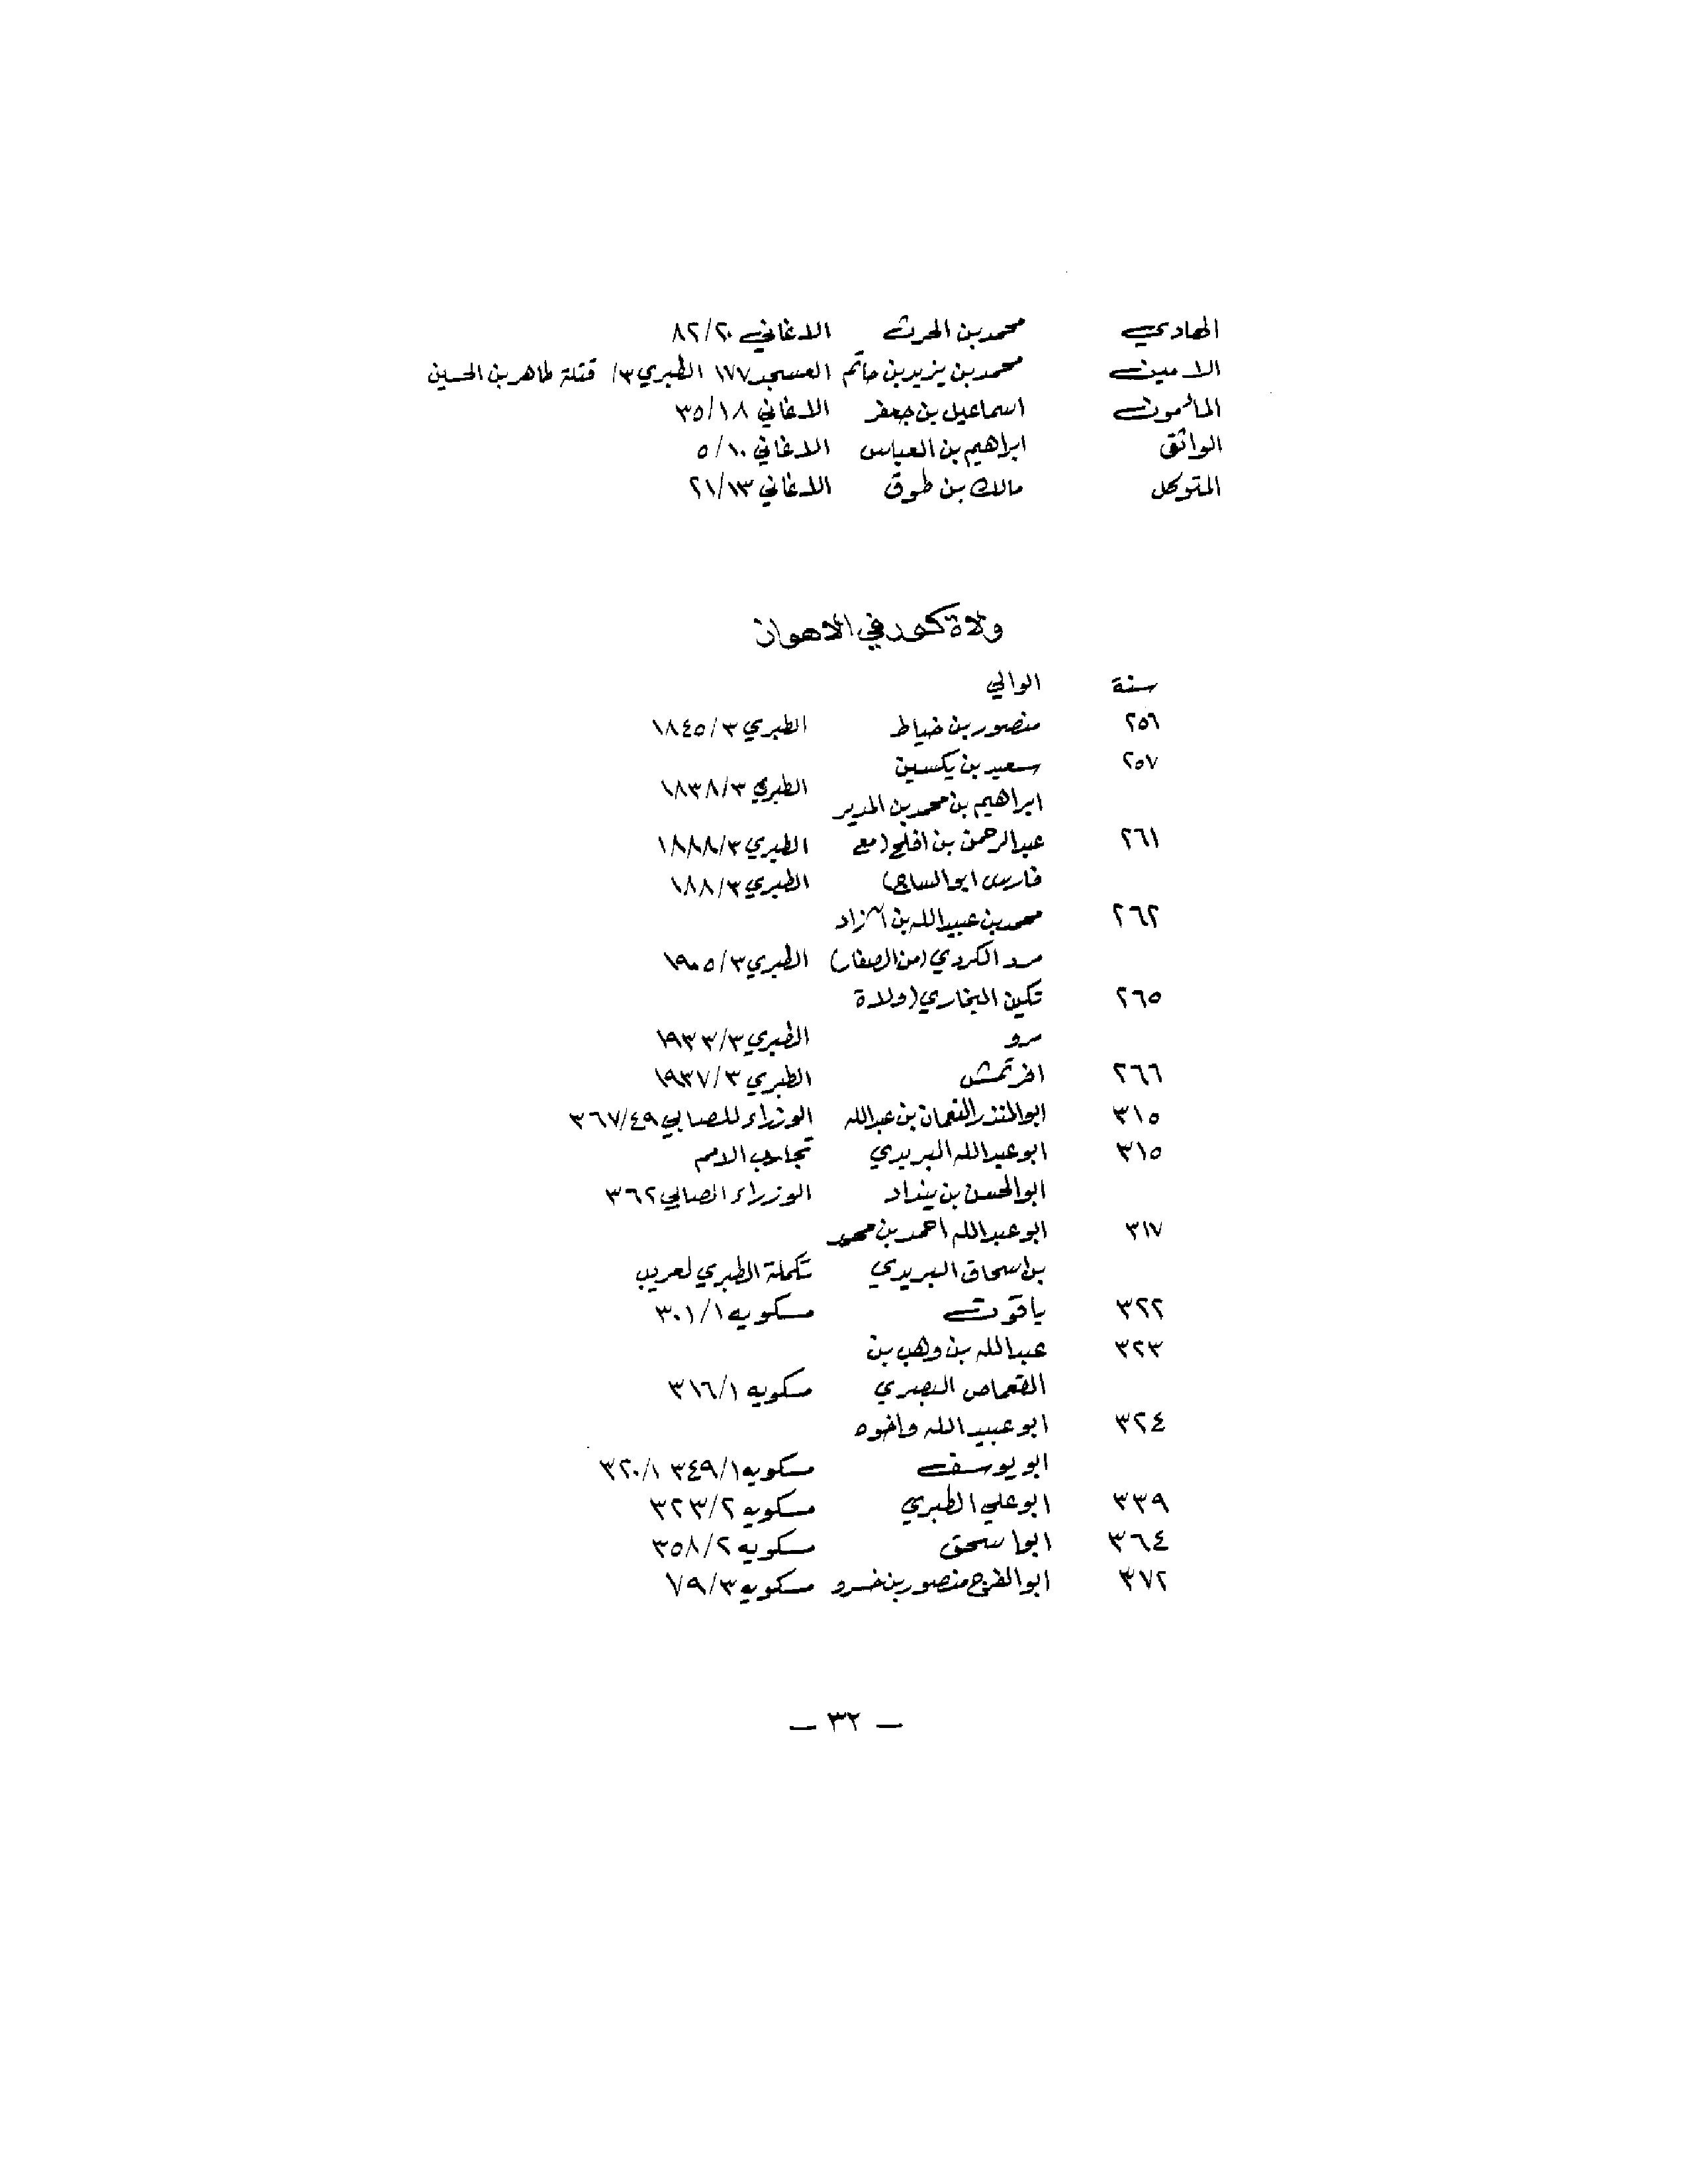 الهادي محمد بن الحرث الاغاني ٨٢/٢٠
الامين محمد بن يزيد بن حاتم العسجد ١٧٧ الطبري ٣/ قتلة طاهر بن الحسين
المأمون اسماعيل بن جعفر الاغاني ٣٥/١٨
الواثق ابراهيم بن العباس الاغاني ٥/١٠
المتوكل مالك بن طوق الاغاني ٢١/١٣
ولاة كور في الاهواز
سنة الوالي
٢٥٦ منصور بن خياط الطبري ١٨٤٥/٣
٢٥٧ سعيد بن يكسين
ابراهيم بن محمد بن المدير الطبري ١٨٣٨/٣
٢٦١ عبدالرحمن بن افلح (مع الطبري ١٨٨٨/٣
فارس ابو الساج) الطبري ١٨٨/٣
٢٦٢ محمد بن عبيدالله بن زاد
الكردي (من الصفار) الطبري ١٩٠٥/٣
٢٦٥ تكين البخاري (ولاة
سرو الطبري ١٩٣٣/٣
٢٦٦ اغرتمش الطبري ١٩٣٧/٣
٣١٥ ابو المنذر النعمان بن عبدالله الوزراء للصابي ٣٦٧/٤٩
٣١٥ ابو عبدالله البريدي تجارب الامم
ابو الحسن بن بنداد الوزراء الصابي ٣٦٢
٣١٧ ابو عبدالله احمد بن محمد
بن اسحاق البريدي تكملة الطبري لعريب
٣٢٢ ياقوت مسكويه ٣٠١/١
٣٢٣ عبدالله بن وهب بن
القعماص البصري مسكويه ٣١٦/١
٣٢٤ ابو عبيد الله واخوه
ابو يوسف مسكويه ٣٤٩/١ ٣٢٠/١
٣٣٩ ابو علي الطبري مسكويه ٣٢٣/٢
٣٦٤ ابو اسحق مسكويه ٣٥٨/٢
٣٧٢ ابو الفرج منصور بن خسرو مسكويه ٧٩/٣
— ٣٢ —